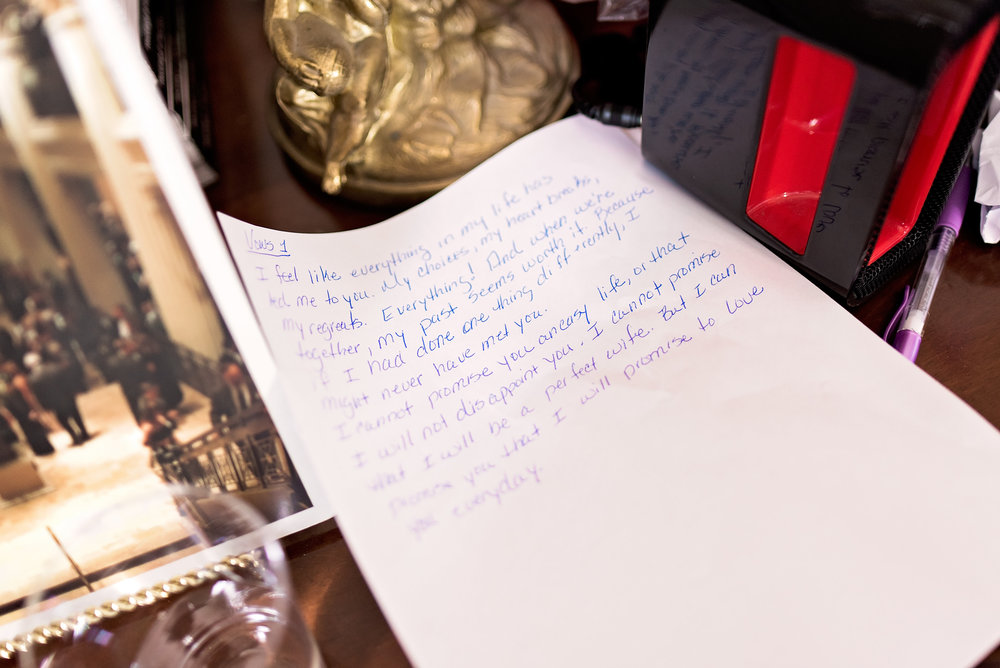 Vows 1
I feel like everything in my life has
led me to you. My choices, my heart breaks,
my regreats. Everything! And when we're
together, my past seems worth it. Because
if I had done one thing differently, I
might never have met you.
I cannot promise you an easy life, or that
I will not disappoint you. I cannot promise
that I will be a perfect wife. But I can
promise you that I will promise to love
you everyday.